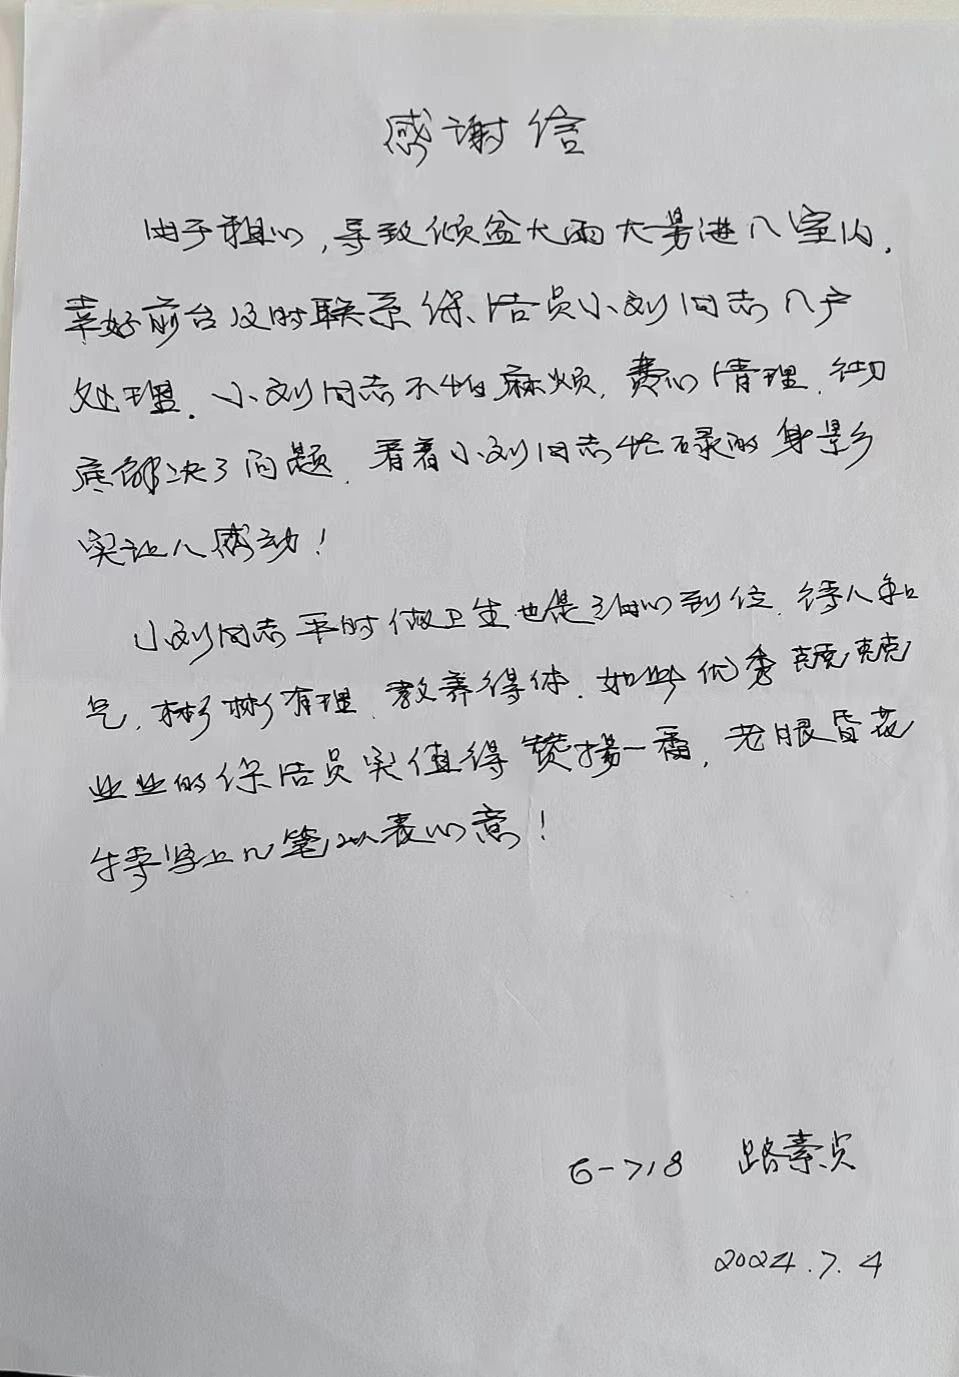 感谢信
由于粗心,导致倾盆大雨大量进入室内,
幸好前台及时联系保洁员小刘同志入户
处理。小刘同志不怕麻烦,费心清理,彻
底解决了问题,看着小刘同志忙碌的身影
实让人感动!
小刘同志平时做卫生也是细心到位,待人和
气,彬彬有理,教养得体。如此优秀兢兢
业业的保洁员实值得赞扬一番,老眼昏花
特写上几笔以表心意!
6-718 路素贞
2024.7.4